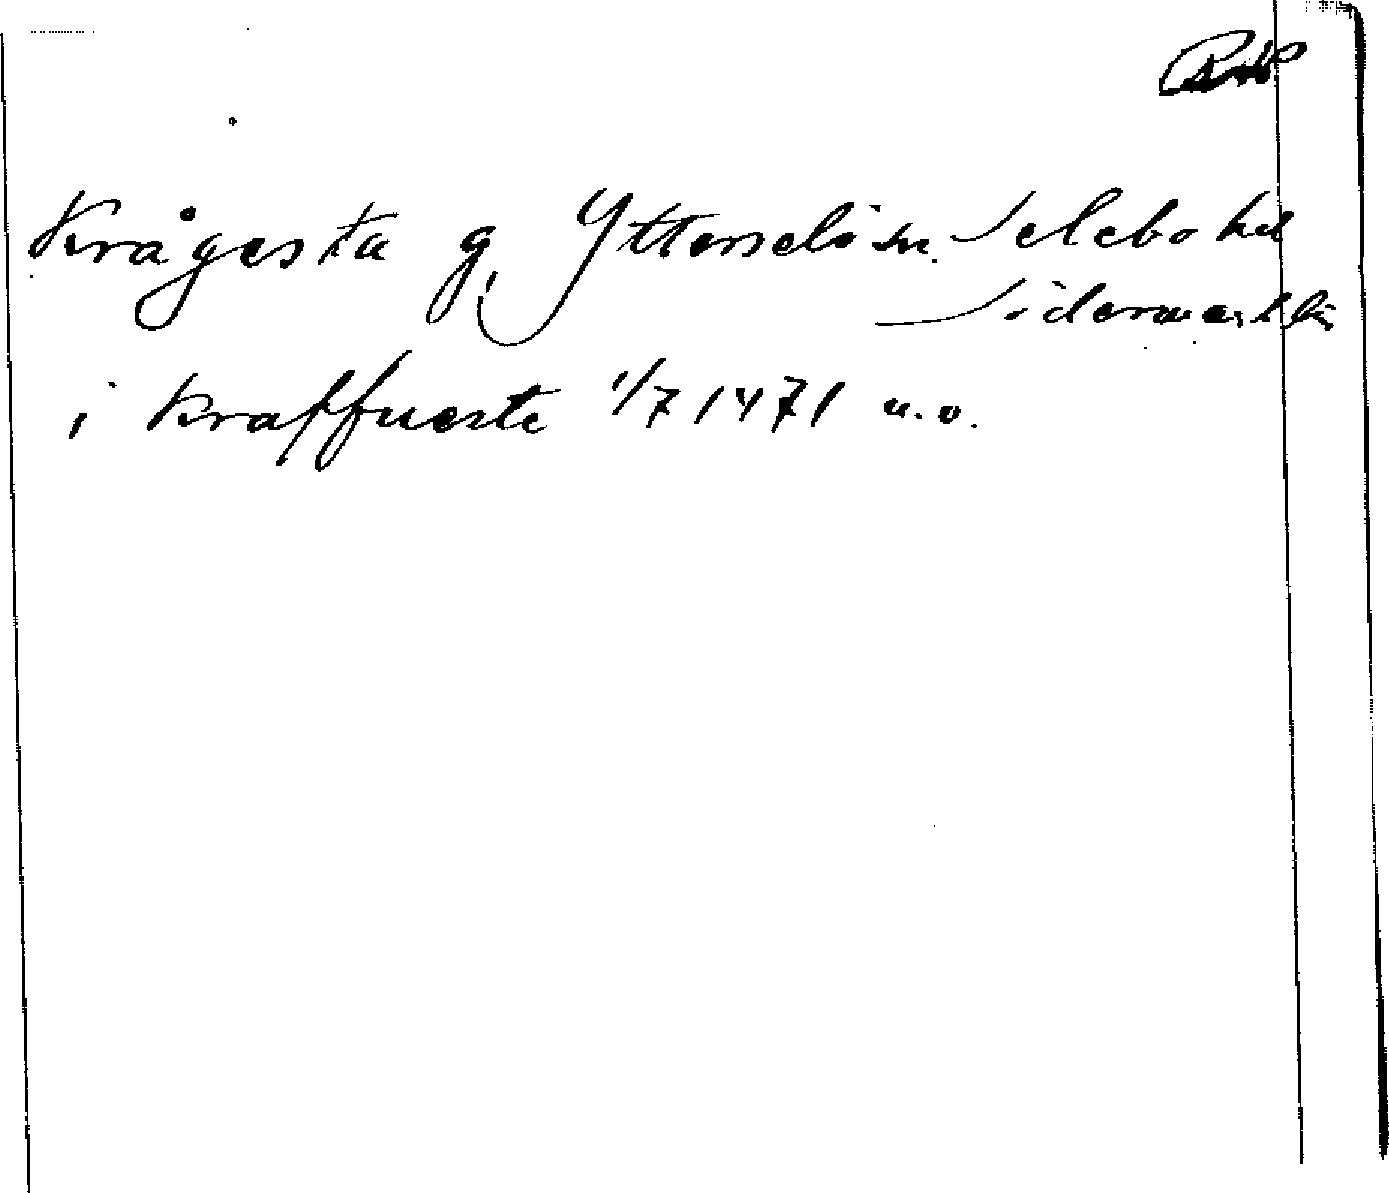 Krågesta g, Ytterselö sn. Selebo hd
Södermanl. län
i Kraffuesta 1/7 1471 u.o.